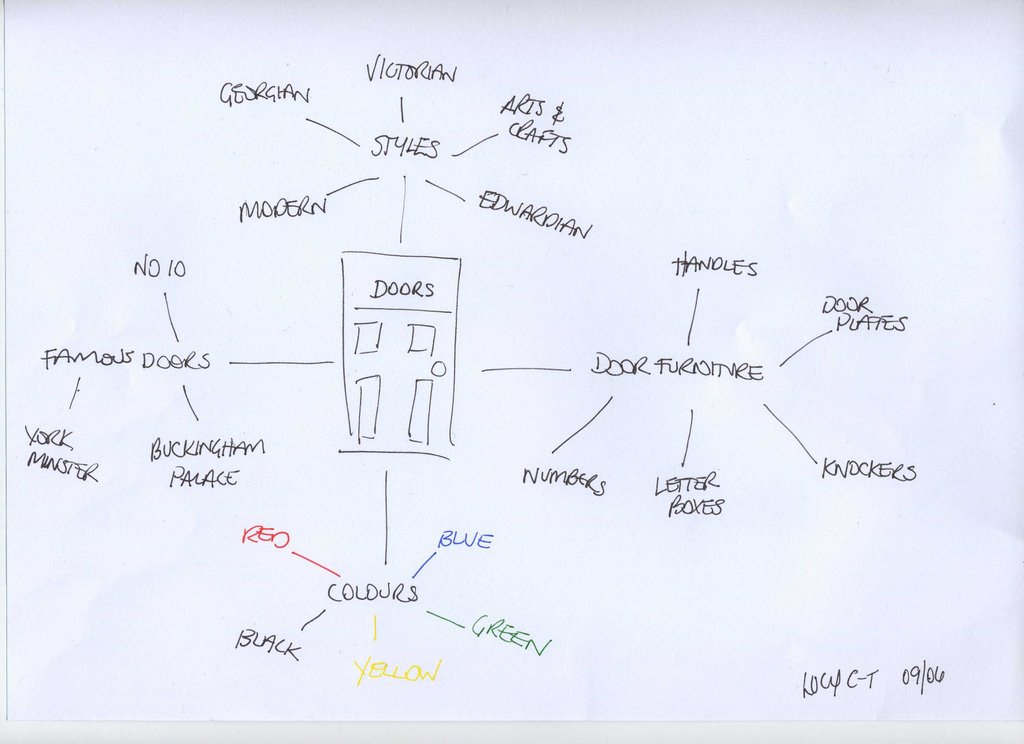 VICTORIAN
GEORGIAN
ARTS &
CRAFTS
STYLES
MODERN
EDWARDIAN
DOORS
NO 10
FAMOUS DOORS
YORK
MINSTER
BUCKINGHAM
PALACE
HANDLES
DOOR
PLATES
DOOR FURNITURE
NUMBERS
LETTER
BOXES
KNOCKERS
RED
BLUE
COLOURS
BLACK
YELLOW
GREEN
LUCY C-T 09/06